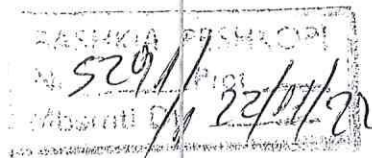 BASHKIA PESHKOPI
5291/1 Prot
22/11/22